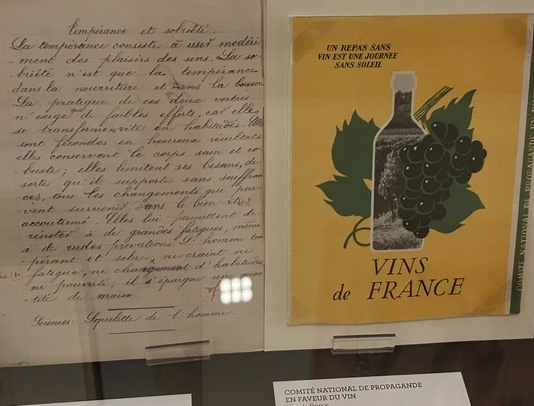 Tempérance et sobriété.
La tempérance consiste à user modéré-
-ment des plaisirs des sens. La so-
-briété n'est que la tempérance
dans la nourriture et dans la boisson.
La pratique de ces deux vertus
n'exige de faibles efforts, car elles
se transforment vite en habitudes. Elles
sont fécondes en heureux résultats
elles conservent le corps sain et ro-
buste; elles limitent ses besoins, de
sorte qu'il supporte sans souffran-
ces, tous les changements qui peu-
vent survenir dans le bien-être
accoutumé. Elles lui permettent de
résister à de grandes fatigues, même
à de rudes privations. L'homme tem-
-pérant et sobre ne craint ni
fatigue, ni changement d'habitudes
ni pauvreté, il s'épargne une quan-
-tité de maux.
Sciences: Squelette de l'homme.
UN REPAS SANS
VIN EST UNE JOURNEE
SANS SOLEIL
VINS
de FRANCE
COMITÉ NATIONAL DE PROPAGANDE EN
COMITÉ NATIONAL DE PROPAGANDE
EN FAVEUR DU VIN